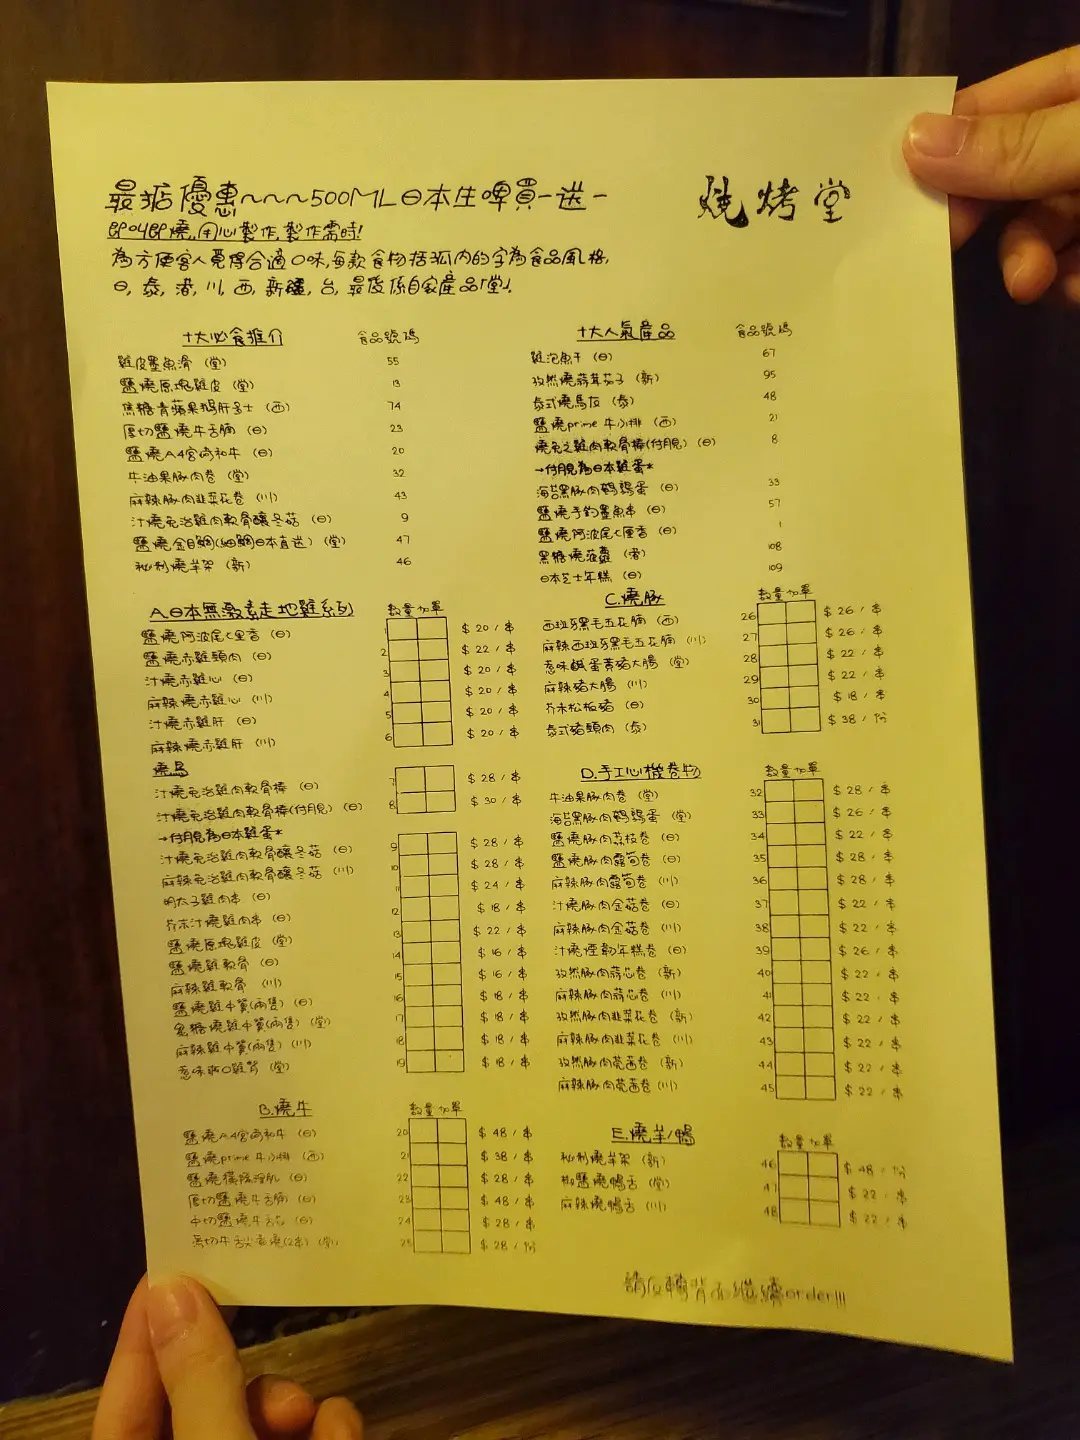 最掂優惠~~~500ML日本生啤買一送一
燒烤堂
即叫即燒,用心製作,製作需時!
為方便客人覓得合適口味,每款食物括弧內的字為食品風格,
日,泰,港,川,西,新疆,台,最後係自家產品「堂」.
十大必食推介 食品號碼
雞皮墨魚滑 (堂) 55
鹽燒原塊雞皮 (堂) 13
焦糖青蘋果鵝肝多士 (西) 74
厚切鹽燒牛舌腩 (日) 23
鹽燒A4宮崎和牛 (日) 20
牛油果豚肉卷 (堂) 32
麻辣豚肉韭菜花卷 (川) 43
汁燒免治雞肉軟骨釀冬菇 (日) 9
鹽燒金目鯛(細鯛日本直送) (堂) 47
秘制燒羊架 (新) 46
十大人氣產品 食品號碼
雞泡魚干 (日) 67
孜然燒蒜茸茄子 (新) 95
泰式燒馬友 (泰) 48
鹽燒prime 牛小排 (西) 21
燒免之雞肉軟骨棒(付月見) (日) 8
→付月見為日本雞蛋*
海苔黑豚肉鵪鶉蛋 (日) 33
鹽燒手釣墨魚串 (日) 57
鹽燒阿波尾七里香 (日) 1
黑糖燒菠蘿 (港) 108
日本芝士年糕 (日) 109
A.日本無激素走地雞系列 數量 加單
鹽燒阿波尾七里香 (日) 1 $ 20 / 串
鹽燒赤雞頸肉 (日) 2 $ 22 / 串
汁燒赤雞心 (日) 3 $ 20 / 串
麻辣燒赤雞心 (川) 4 $ 20 / 串
汁燒赤雞肝 (日) 5 $ 20 / 串
麻辣燒赤雞肝 (川) 6 $ 20 / 串
燒鳥
汁燒免治雞肉軟骨棒 (日) 7 $ 28 / 串
汁燒免治雞肉軟骨棒(付月見) (日) 8 $ 30 / 串
→付月見為日本雞蛋*
汁燒免治雞肉軟骨釀冬菇 (日) 9 $ 28 / 串
麻辣免治雞肉軟骨釀冬菇 (川) 10 $ 28 / 串
明太子雞肉串 (日) 11 $ 24 / 串
芥末汁燒雞肉串 (日) 12 $ 18 / 串
鹽燒原塊雞皮 (堂) 13 $ 22 / 串
鹽燒雞軟骨 (日) 14 $ 16 / 串
麻辣雞軟骨 (川) 15 $ 16 / 串
鹽燒雞中翼(兩隻) (日) 16 $ 18 / 串
黑糖燒雞中翼(兩隻) (堂) 17 $ 18 / 串
麻辣雞中翼(兩隻) (川) 18 $ 18 / 串
惹味雞腎 (堂) 19 $ 18 / 串
B.燒牛 數量 加單
鹽燒A4宮崎和牛 (日) 20 $ 48 / 串
鹽燒prime 牛小排 (西) 21 $ 38 / 串
鹽燒橫隔淨肌 (日) 22 $ 28 / 串
厚切鹽燒牛舌腩 (日) 23 $ 48 / 串
中切鹽燒牛舌芯 (日) 24 $ 28 / 串
薄切牛舌火蔥燒(2串) (堂) 25 $ 28 / 份
C.燒豚 數量 加單
西班牙黑毛五花腩 (西) 26 $ 26 / 串
麻辣西班牙黑毛五花腩 (川) 27 $ 26 / 串
惹味鹹蛋黃豬大腸 (堂) 28 $ 22 / 串
麻辣豬大腸 (川) 29 $ 22 / 串
芥末松板豬 (日) 30 $ 18 / 串
泰式豬頸肉 (泰) 31 $ 38 / 份
D.手工心機卷物 數量 加單
牛油果豚肉卷 (堂) 32 $ 28 / 串
海苔黑豚肉鵪鶉蛋 (堂) 33 $ 26 / 串
鹽燒豚肉荔枝卷 (日) 34 $ 22 / 串
鹽燒豚肉露筍卷 (日) 35 $ 28 / 串
麻辣豚肉露筍卷 (川) 36 $ 28 / 串
汁燒豚肉金菇卷 (日) 37 $ 22 / 串
麻辣豚肉金菇卷 (川) 38 $ 22 / 串
汁燒煙韌年糕卷 (日) 39 $ 26 / 串
孜然豚肉蒜芯卷 (新) 40 $ 22 / 串
麻辣豚肉蒜芯卷 (川) 41 $ 22 / 串
孜然豚肉韭菜花卷 (新) 42 $ 22 / 串
麻辣豚肉韭菜花卷 (川) 43 $ 22 / 串
孜然豚肉莞茜卷 (新) 44 $ 22 / 串
麻辣豚肉莞茜卷(川) 45 $ 22 / 串
E.燒羊/鴨 數量 加單
秘制燒羊架 (新) 46 $ 48 / 份
椒鹽燒鴨舌 (堂) 47 $ 22 / 串
麻辣燒鴨舌 (川) 48 $ 22 / 串
請反轉背面繼續order!!!